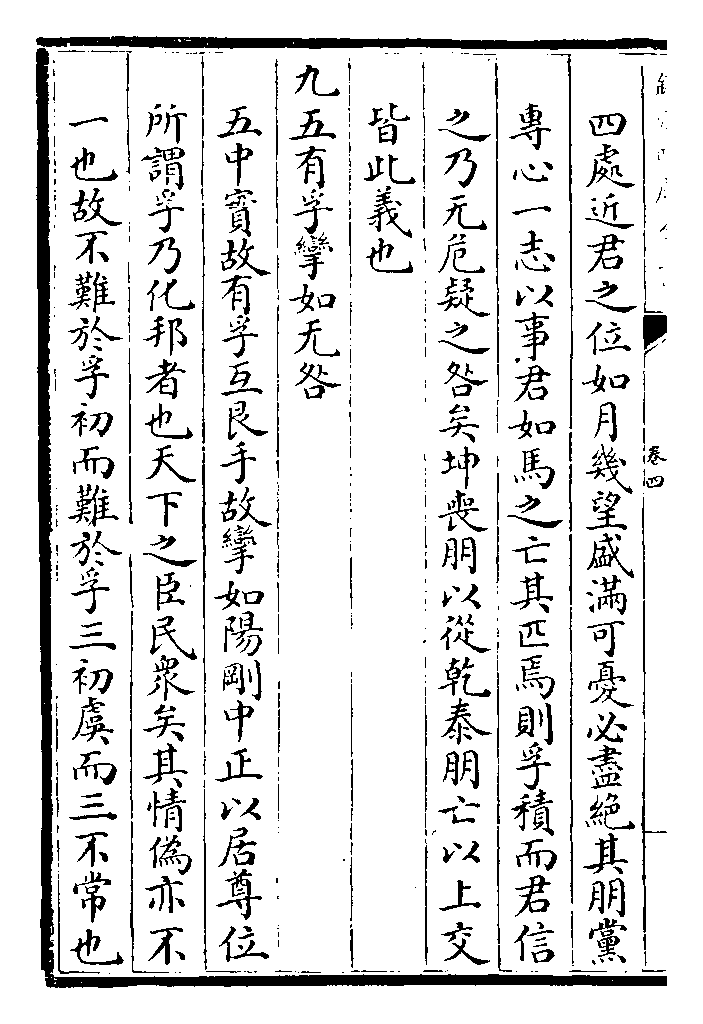 四處近君之位如月幾望盛滿可憂必盡絕其朋黨
專心一志以事君如馬之亡其匹焉則孚積而君信
之乃无危疑之咎矣坤喪朋以從乾泰朋亡以上交
皆此義也
九五有孚攣如无咎
五中實故有孚互艮手故攣如陽剛中正以居尊位
所謂孚乃化邦者也天下之臣民衆矣其情偽亦不
一也故不難於孚初而難於孚三初虞而三不常也
卷四